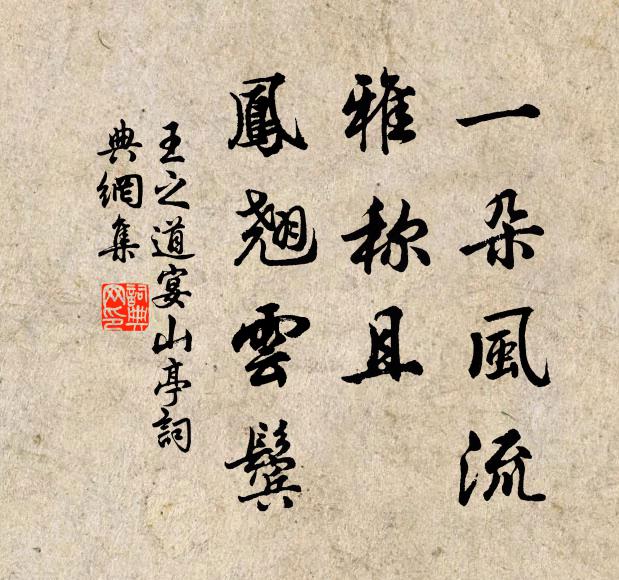 一朵風流
雅称且
鳳翹雲鬓
王之道宴山亭詞
典網集
詞典網印